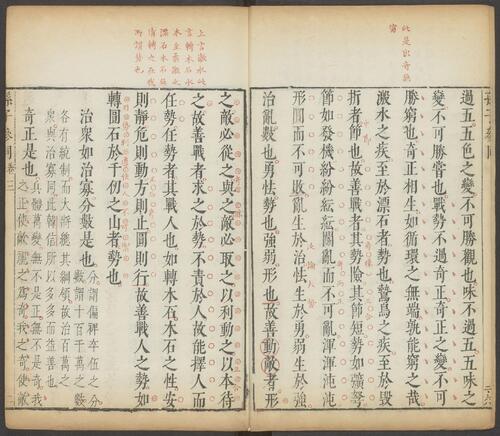 此是出奇無
窮
過五五色之變不可勝觀也味不過五五味之
變不可勝嘗也戰勢不過奇正奇正之變不可
勝窮也奇正相生如循環之無端孰能窮之哉
激水之疾至於漂石者勢也鷙鳥之疾至於毀
折者節也故善戰者其勢險其節短勢如彍弩
節如發機紛紛紜紜鬭亂而不可亂渾渾沌沌
形圓而不可敗亂生於治怯生於勇弱生於強
治亂數也勇怯勢也強弱形也故善動敵者形
上言激水此
言轉木石水
木石
所謂勢也
之敵必從之與之敵必取之以利動之以本待
之故善戰者求之於勢不責於人故能擇人而
任勢任勢者其戰人也如轉木石木石之性安
則靜危則動方則止圓則行故善戰人之勢如
轉圓石於千仞之山者勢也
治衆如治寡分數是也
分謂偏裨卒伍之分
數謂十百千萬之數
各有統制而大將總其綱領故治百萬之
衆與治寡同此韓信所以多多而益善也
奇正是也
兵體萬變無不是正無不是奇我
之正使敵視之爲奇我之奇使敵
孫子參同 卷三